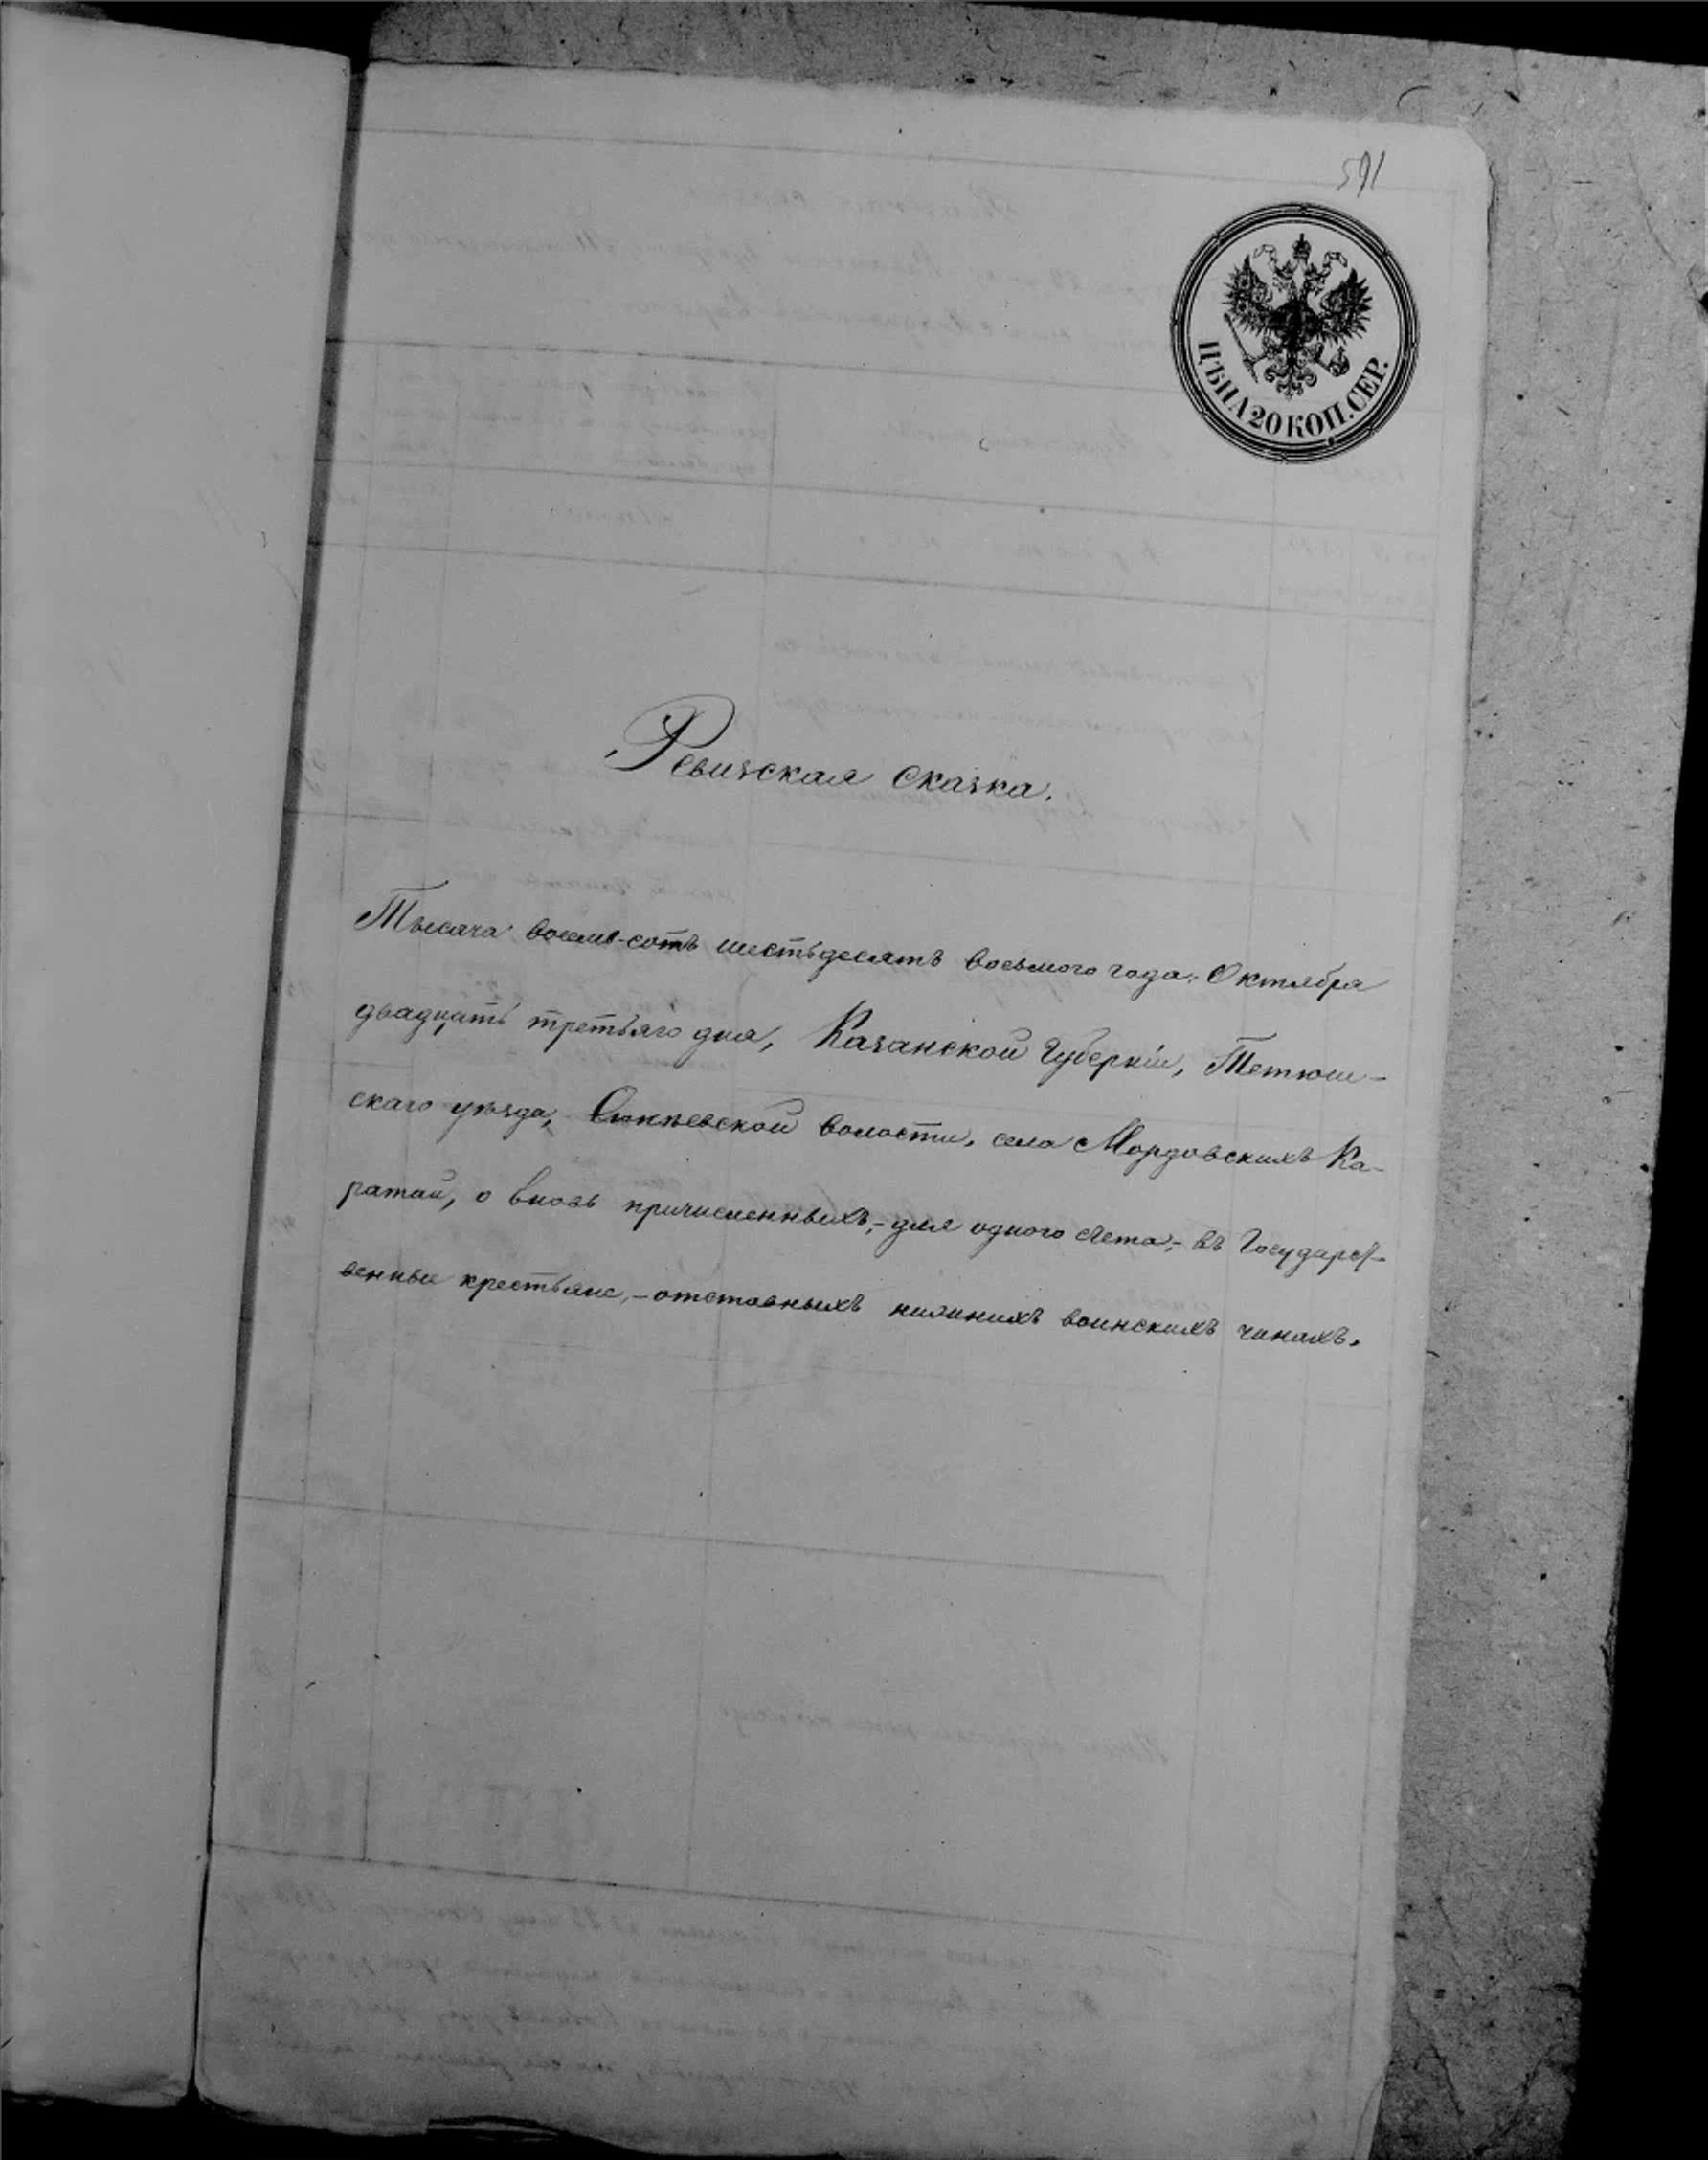 591
ЦѢНА 20 КОП. СЕР.
Ревизская сказка.
Тысяча восемь-сотъ шестьдесятъ восьмого года, Октября
двадцать третьяго дня, Казанской Губерніи, Тетюш-
скаго уѣзда, Сюкѣевской волости, села Мордовскихъ Ка-
ратай, о вновь причисленныхъ,- для одного счета,- въ Государст-
венные крестьяне,- отставныхъ нижнихъ воинскихъ чинахъ.